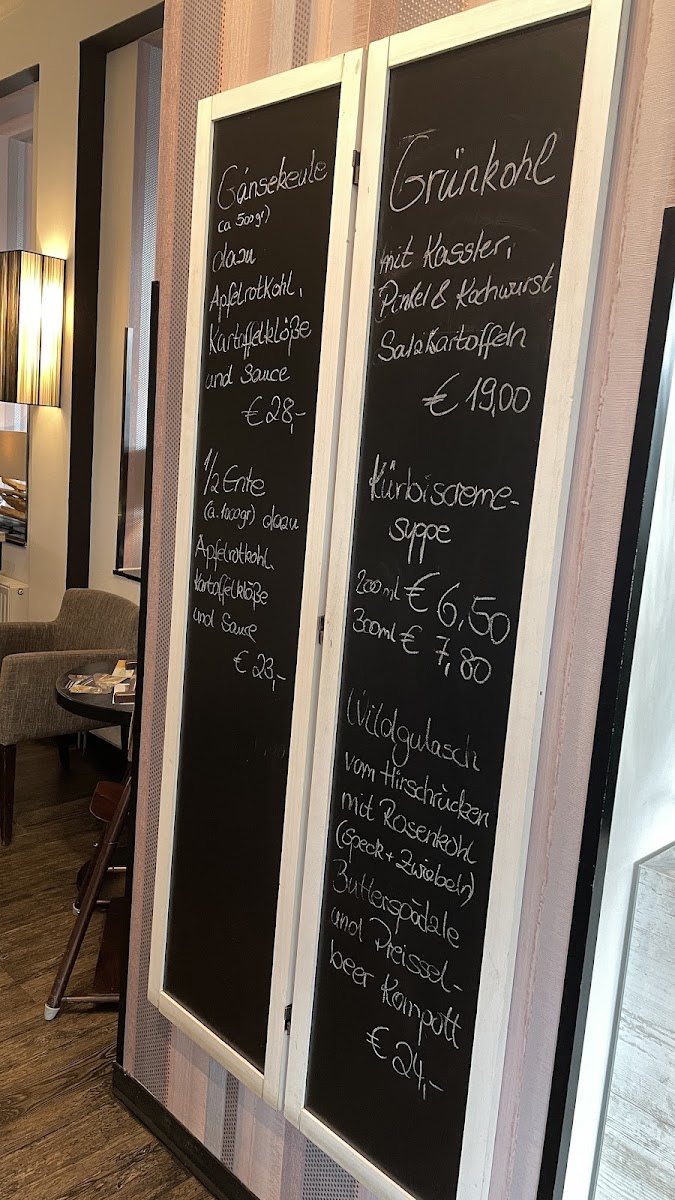 Gänsekeule
ca 500gr)
dazu
Apfelrotkohl,
Kartoffelklöße
und Sauce
€ 28,-
1/2 Ente
(ca. 1000gr) dazu
Apfelrotkohl,
Kartoffelklöße
und Sauce
€ 23,-
Grünkohl
mit Kassler,
Pinkel & Kochwurst
Salzkartoffeln
€ 19,00
Kürbiscreme-
suppe
200ml € 6,50
300ml € 7,80
Wildgulasch
vom Hirschrücken
mit Rosenkohl
(speck + Zwiebeln)
Butterspätzle
und Preissel-
beer Kompott
€ 24,-